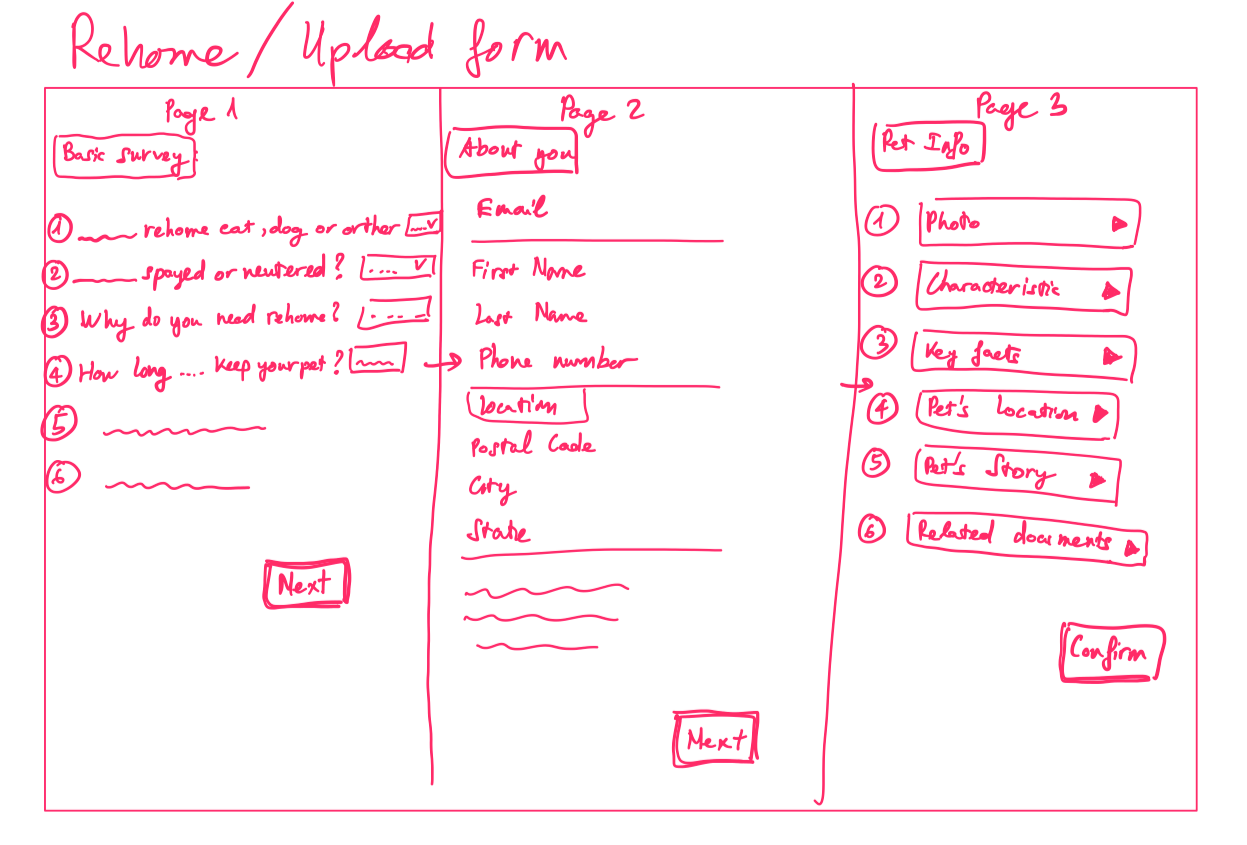 Rehome / Upload form
Page 1
Basic survey:
1 rehome cat, dog or orther
2 spayed or neutered? ....
3 Why do you need rehome? ....
4 How long .... keep your pet?
5
6
Next
Page 2
About you
Email
First Name
Last Name
Phone number
Location
Postal Code
City
State
Next
Page 3
Pet Info
1 Photo
2 Characteristic
3 Key facts
4 Pet's location
5 Pet's Story
6 Related documents
Confirm